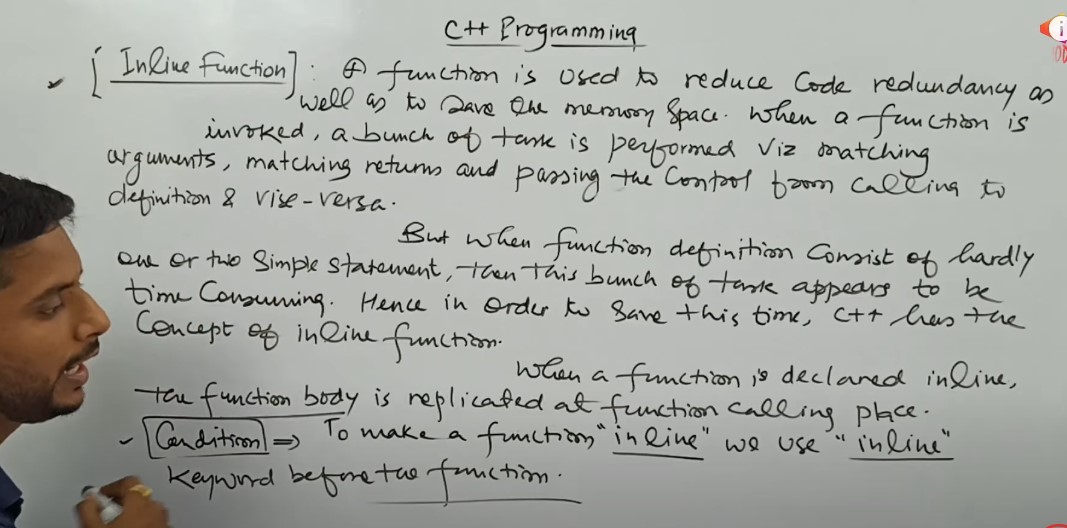 C++ Programming
[Inline Function] : A function is used to reduce Code redundancy as
well as to save the memory space. When a function is
invoked, a bunch of task is performed viz matching
arguments, matching returns and passing the Control from calling to
definition & vise-versa.
But when function definition Consist of hardly
one or two Simple Statement, then this bunch of task appears to be
time Consuming. Hence in order to Save this time, C++ has the
Concept of inline function.
When a function is declared inline,
the function body is replicated at function calling place.
[Condition] ⇒ To make a function "inline" we use "inline"
Keyword before the function.